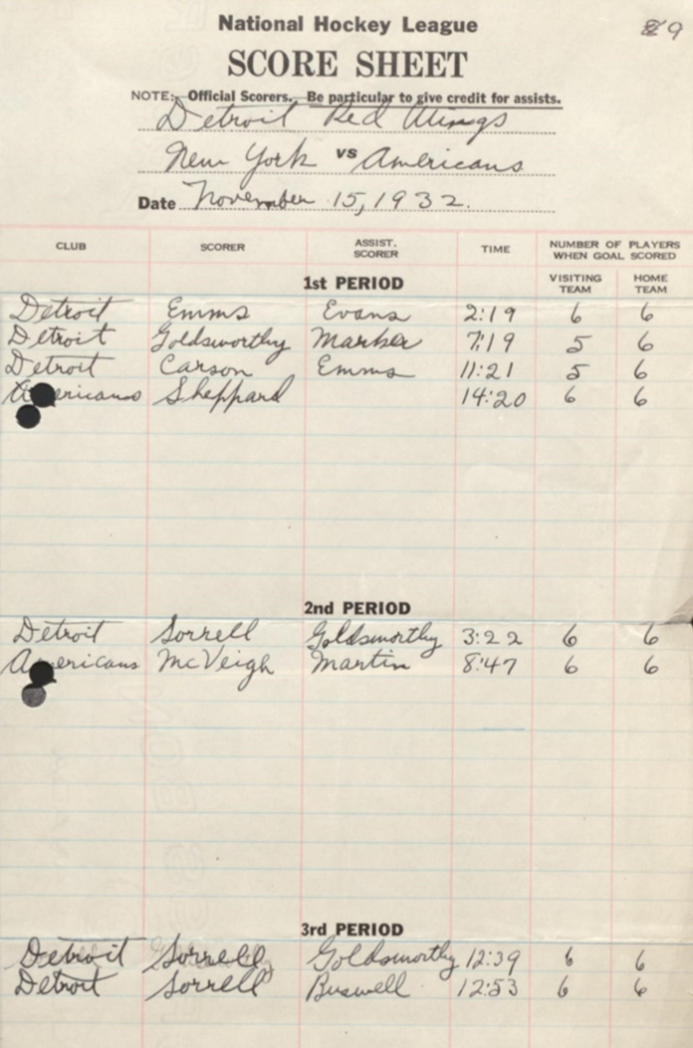 National Hockey League
89
SCORE SHEET
NOTE: Official Scorers. Be particular to give credit for assists.
Detroit Red Wings
New York vs Americans
Date November 15, 1932.
CLUB SCORER ASSIST. SCORER TIME NUMBER OF PLAYERS WHEN GOAL SCORED
1st PERIOD VISITING TEAM HOME TEAM
Detroit Emms Evans 2:19 6 6
Detroit Goldsworthy Marker 7:19 5 6
Detroit Carson Emms 11:21 5 6
Americans Sheppard 14:20 6 6
2nd PERIOD
Detroit Sorrell Goldsworthy 3:22 6 6
Americans McVeigh Martin 8:47 6 6
3rd PERIOD
Detroit Sorrell Goldsworthy 12:39 6 6
Detroit Sorrell Buswell 12:53 6 6